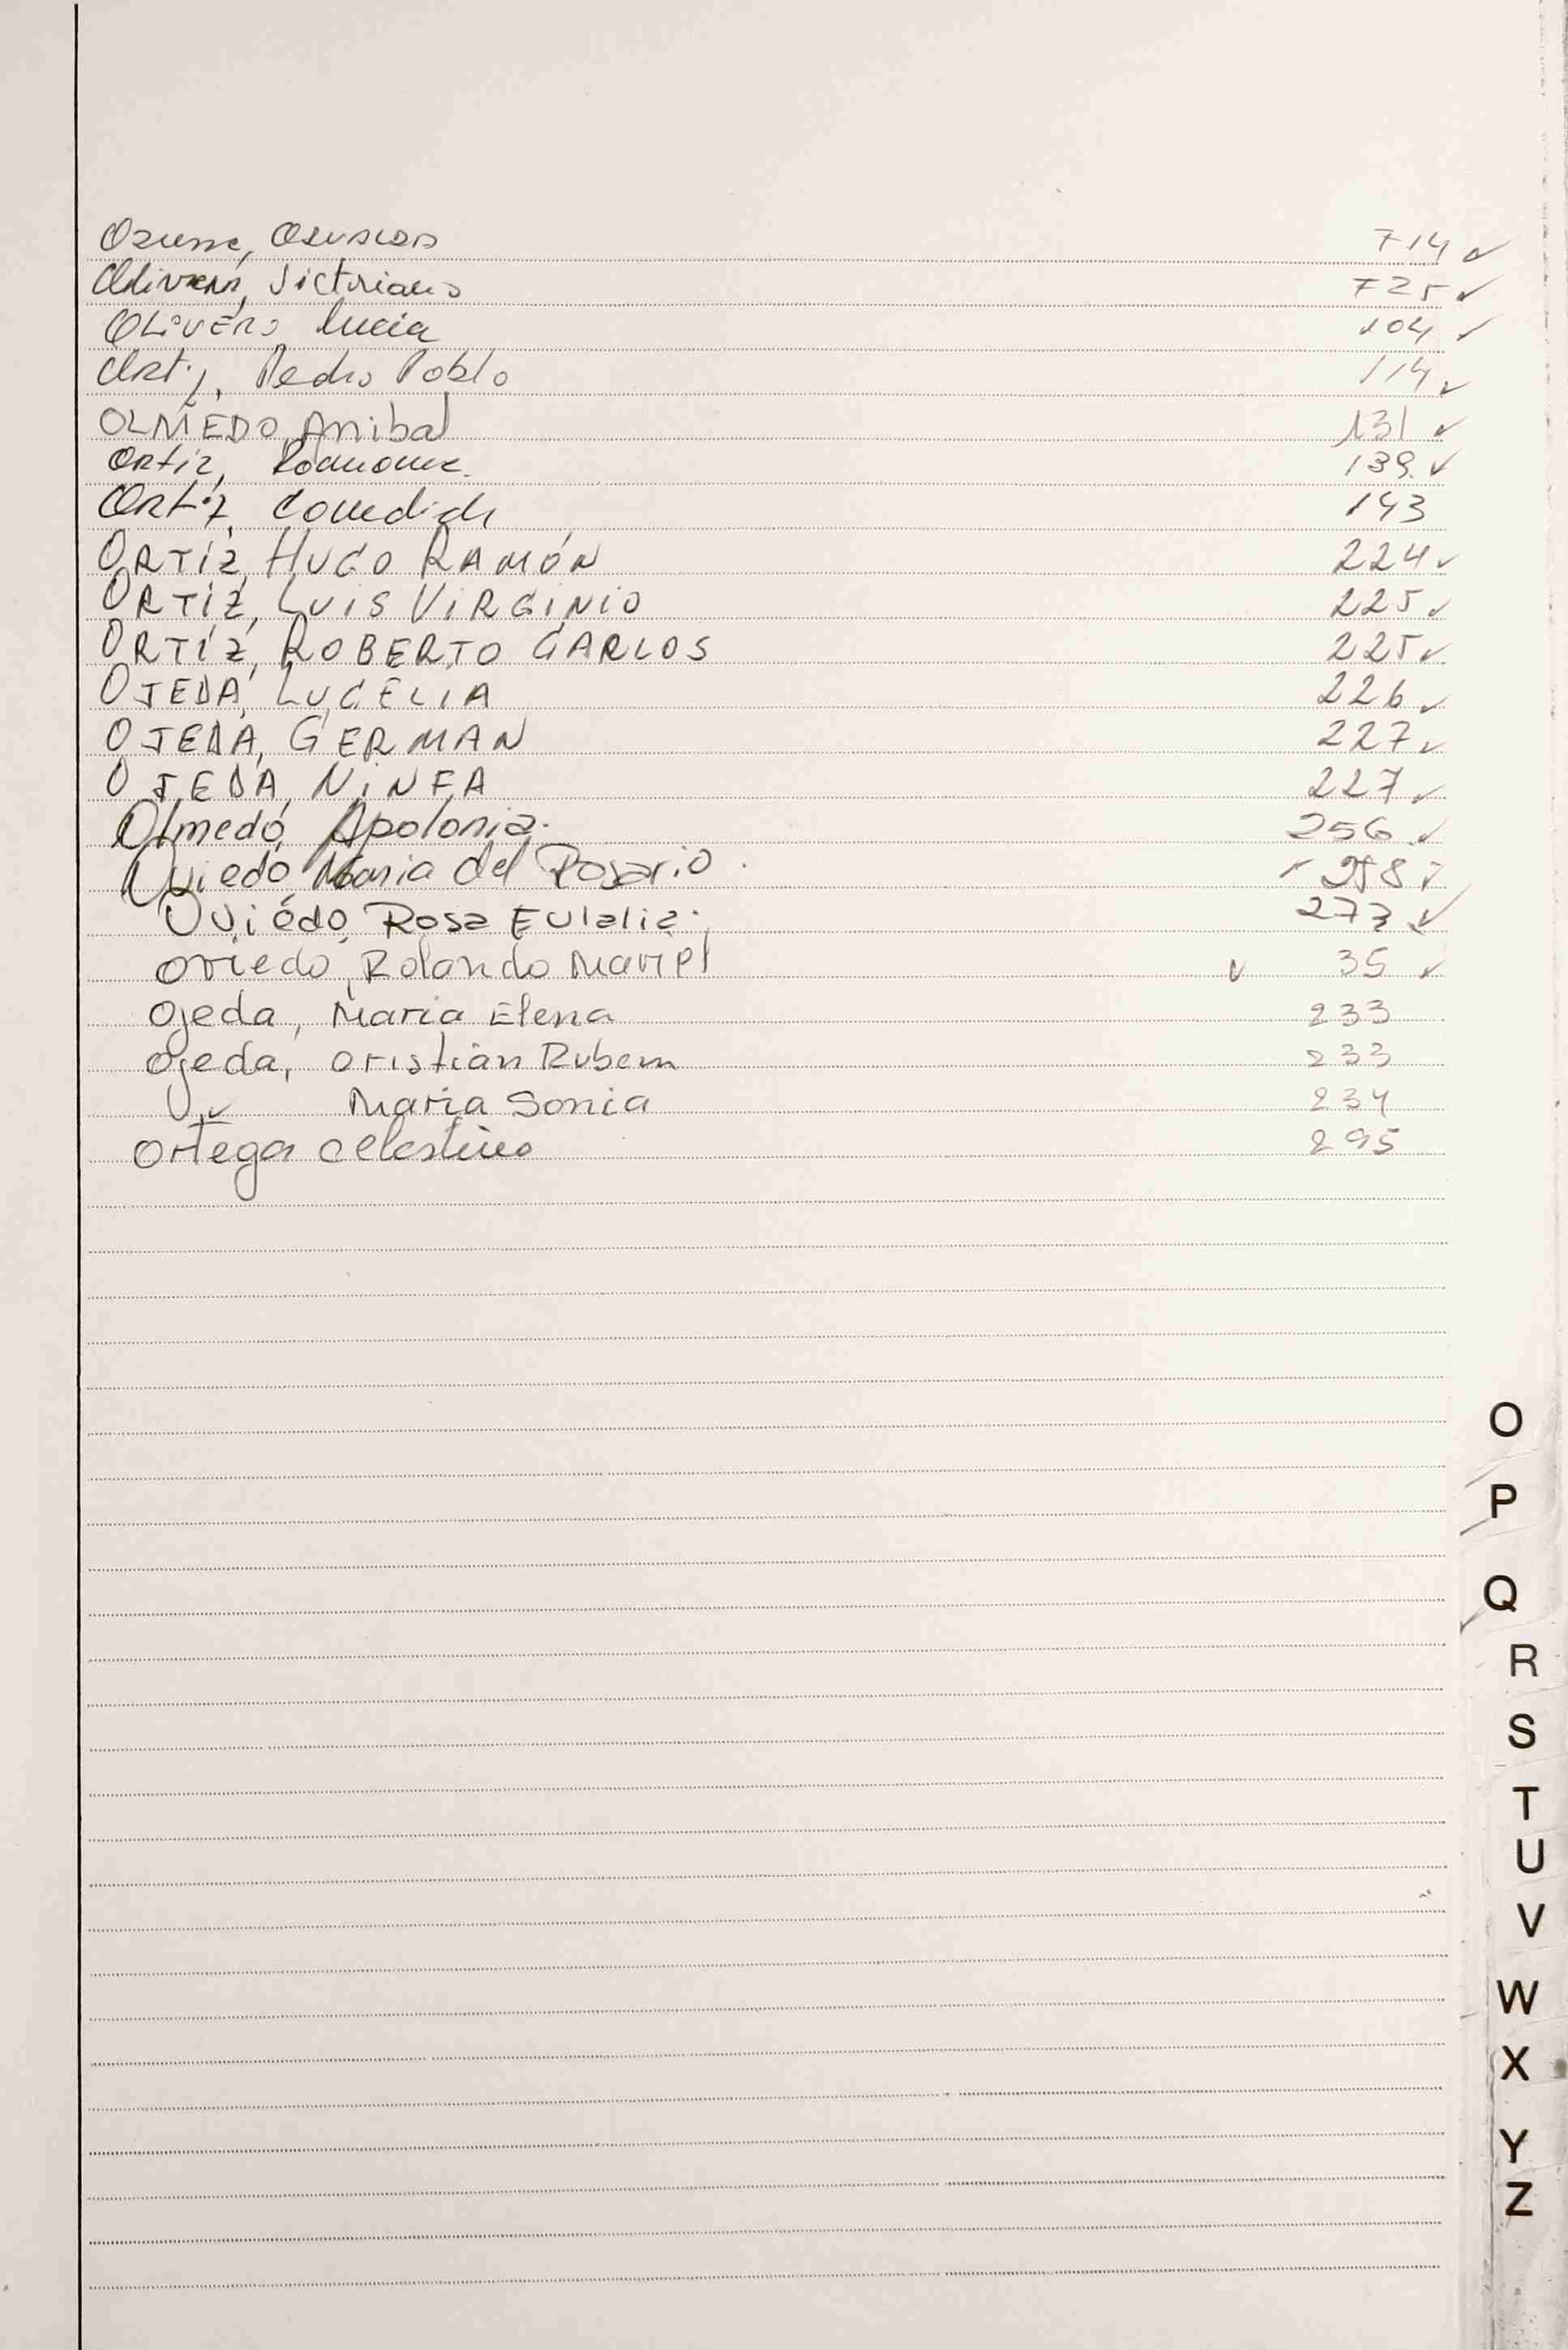 714 ✓
Victoriano 725 ✓
OLIVERO, Lucia 104 ✓
Ortiz, Pedro Pablo 114 ✓
OLMEDO, Anibal 131 ✓
Ortiz, 139. ✓
Ortiz, 143
ORTÍZ, HUGO RAMÓN 224 ✓
ORTÍZ, LUIS VIRGINIO 225 ✓
ORTÍZ, ROBERTO CARLOS 225 ✓
OJEDA, LUCELIA 226 ✓
OJEDA, GERMAN 227 ✓
OJEDA, NINFA 227 ✓
Olmedo, Apolonia. 256 ✓
Oviedo Maria del Rosario. ✓
Oviedo, Rosa Eulalia. 273 ✓
Oviedo, Rolando Mariel ✓ 35 ✓
Ojeda, Maria Elena 233
Ojeda, Cristian Ruben 233
Maria Sonia 234
Ortega Celestino 295
O
P
Q
R
S
T
U
V
W
X
Y
Z